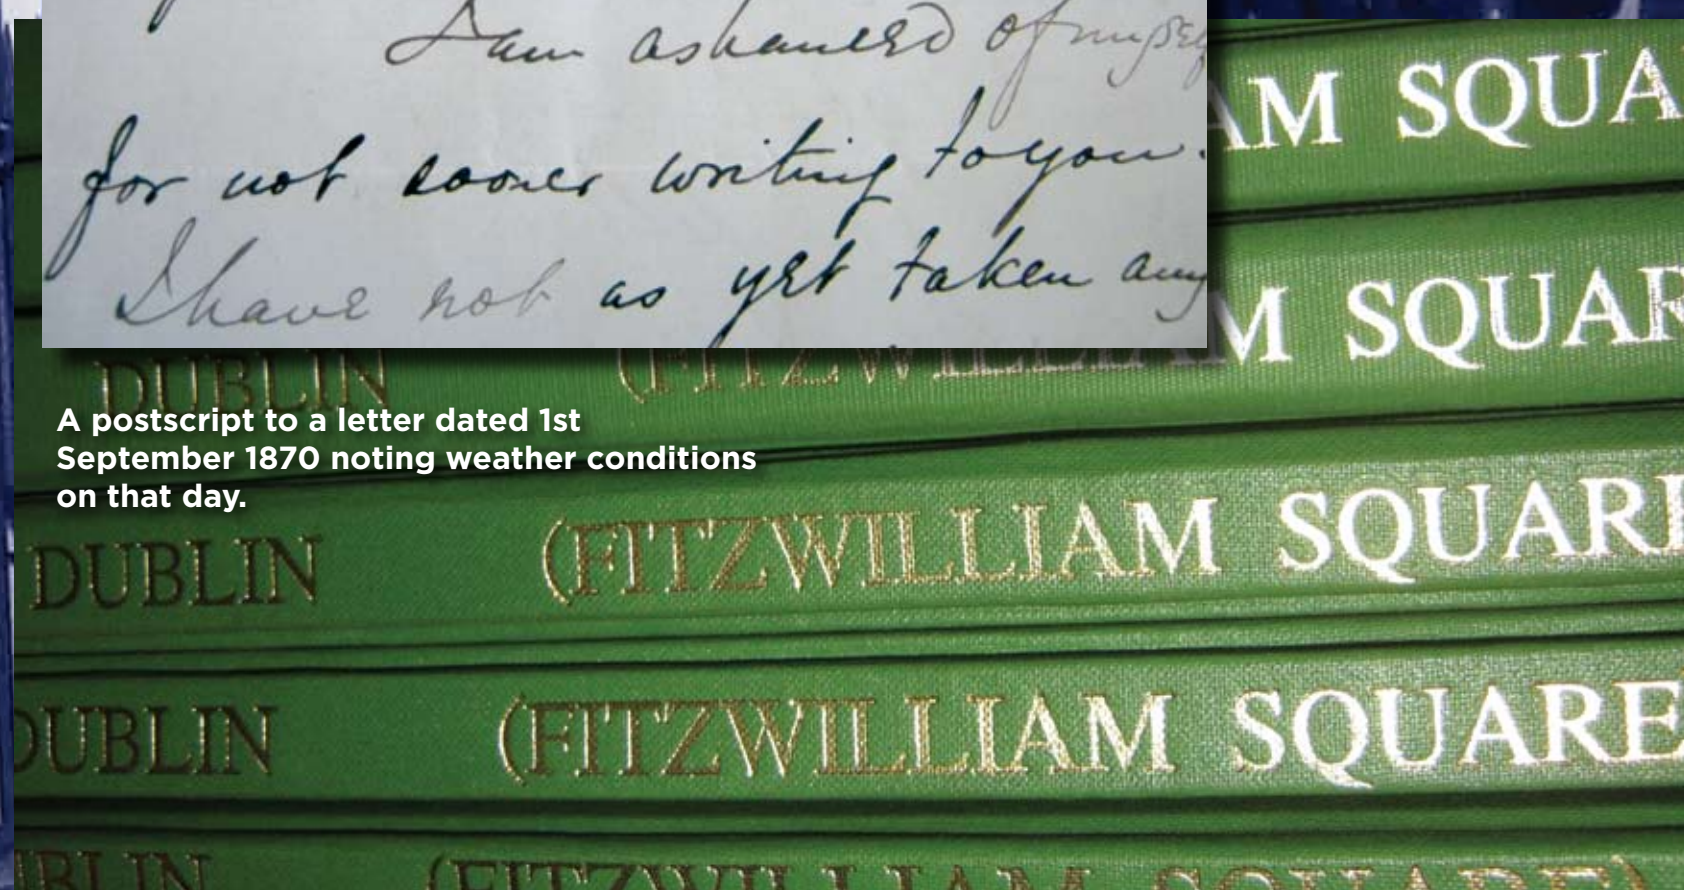 I am ashamed of myself
for not sooner writing to you.
I have not as yet taken any
AM SQUA
M SQUAR
DUBLIN (FITZWILLIAM
A postscript to a letter dated 1st
September 1870 noting weather conditions
on that day.
DUBLIN (FITZWILLIAM SQUARE
DUBLIN (FITZWILLIAM SQUARE
BLIN (FITZWILLIAM SQUARE)